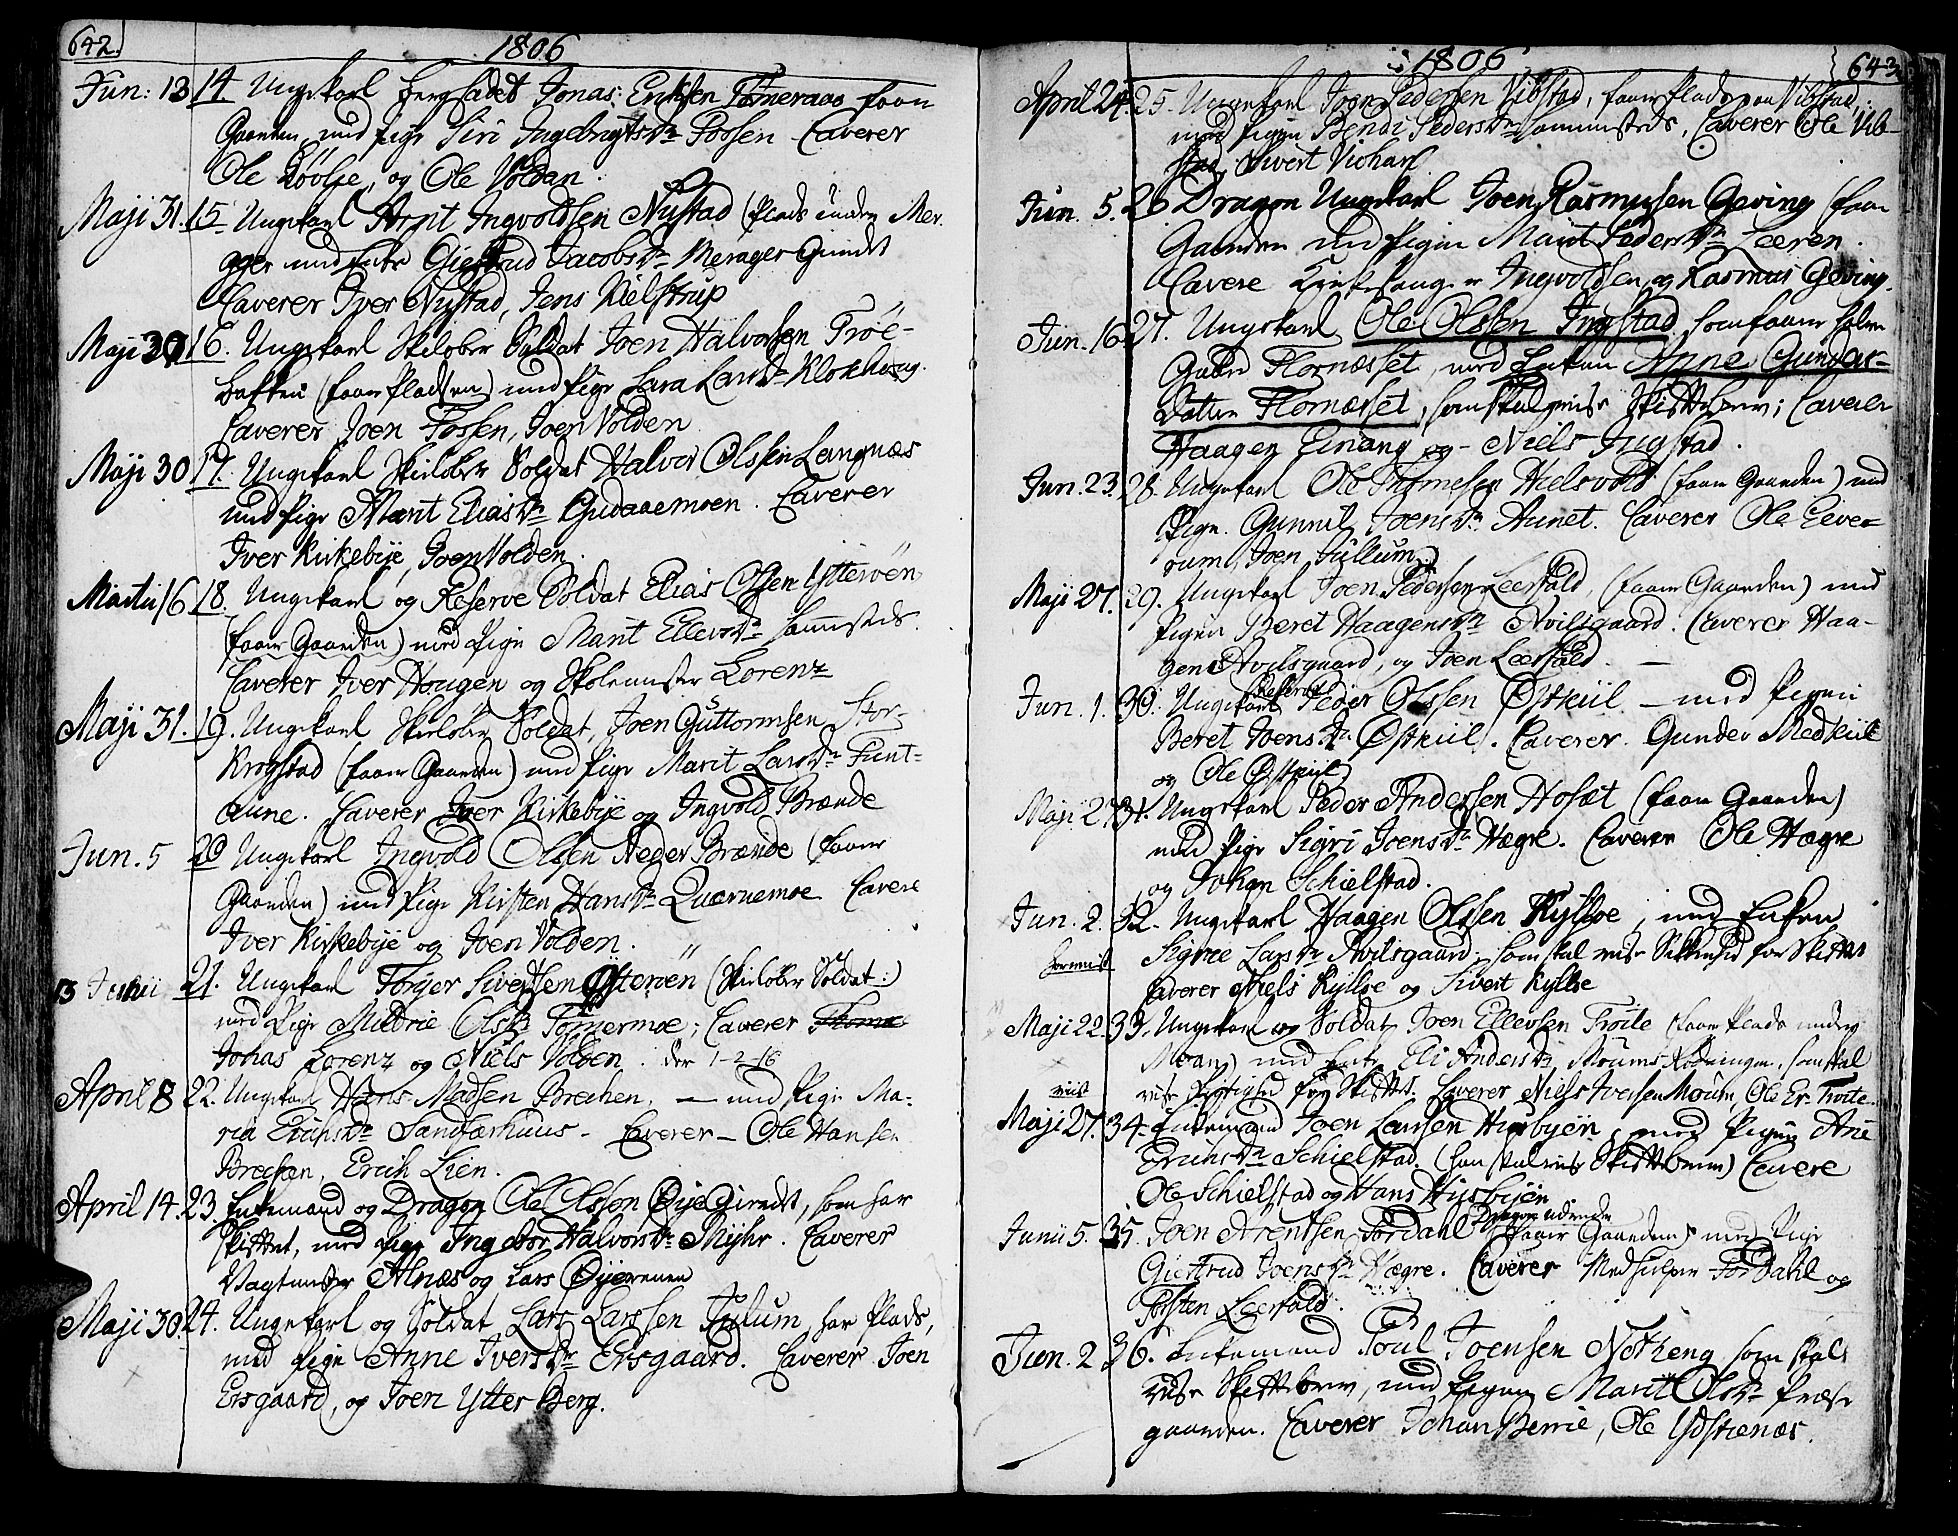 642.
1806
Jun: 13 14. Ungekarl Jonas Erichsen faar
Gaarden, med Pige Siri Ingebrigtsdr Fossen Caverer
Ole og Ole Voldan
Maji 31. 15 Ungekarl Arnt Ingvoldsen Nustad (Plads under Mer-
ager med Enke Giertrud Jacobsdr Merager
Caverer Iver Nustad, Jens Kielstrup
Maji 30 16. Ungekarl Skieløber Soldat Joen Halvorsen Trøe-
bakken (faar Pladsen) med Pige Sara Larsdr Klokhoug.
Caverer Joen Fossen, Joen Volden
Maji 30 17. Ungekarl Skieløber Soldat Halvor Olssen Langnæs
med Pige Marit Eliasdr Gudaaemoen. Caverer
Iver Kirkebye, Joen Volden.
Martii 16 18. Ungekarl og Reserve Soldat Elias Olssen Ytterøen
(faar Gaarden) med Pige Marit Ellevsdr sammesteds.
Caverer Iver Hougen og Skolemester Lorenz
Maji 31. 19. Ungekarl Skieløber Soldat, Joen Guttormsen Stor-
Krogstad (faar Gaarden) med Pige Marit Larsdr Funt-
aune. Caverer Iver Kirkebye og Ingvold Brænde
Jun. 5 20 Ungekarl Ingvold Olssen Neder Brænde (faar
Gaarden) med Pige Kirsten Hansdr Quærnemoe Cavere
Iver Kirkebye og Joen Volden.
13 Junii 21. Ungekarl Torger Sivertsen (Skieløber Soldat:)
med Pige Mildrie Olsdr Tønnermoe; Caverer
Jonas Lorenz og Niels Volden. der 1-2-16
April 8 22. Ungekarl Hans Madsen Brechen, — med Pige Ma-
ria Erichsdr Sandfærhuus - Caverer - Ole Hansen
Brechen, Erich Lien.
April 14. 23 Enkemand og Dragon Ole Olsson Øye, som har
Skiftet, med Pige Ingebor Halvorsdr Myhr. Caverer
Vagtmester Alnæs og Lars Øyen
Maji 30 24. Ungekarl og Soldat Lars Larssen Julum, har Plads,
med Pige Anne Iversdr Ersgaard. Caverer Joen
Ersgaard, og Joen Ytter Berg.
1806
643
April 24. 25. Ungekarl Joen Pedersen Vibstad, faar Plads paa Vibstad
med Pigen Bendi Pedersdr sammesteds, Caverer Ole Vib-
stad, Sivert Vichan
Jun. 5. 26 Dragon Ungekarl Joen Rasmusen Geving (faar
Gaarden med Pigen Marit Pedersdr Leeren.
Cavere Kirkesanger Ingvoldsen og Rasmus Geving.
Jun. 16 27. Ungekarl Ole Olssen Ingstad som faar halve
Gaard Flornæsset, med Enken Anne Gunder-
Datter Flornæsset, som skal vise Skiftebrev; Caverer
Haagen Einang og - Niels Ingstad.
Jun. 23. 28. Ungekarl Ole Hielsvold (faar Gaarden) med
Pigen Gunnil Joensdr Aunet. Caverer Ole Elve-
rum, Joen Jullum
Maji 27. 29. Ungekarl Joen Pedersen Leerfald, (faar Gaarden) med
Pigen Beret Haagensdr Avilsgaard. Caverer Haa-
gen Avilsgaard, og Joen Leerfald. —
Jun. 1. 30. Ungekarl Reserve Peder Olssen Østkiil — med Pigen
Beret Joensdr Østkiil. Caverer Gunder Medkiil
og Ole Østkiil
Maji 27 31. Ungekarl Peder Anderssen Hosæt (faar Gaarden)
med Pige Sigri Joensdr Hægre. Caverer Ole Hægre
og Johan Schielstad.
Jun. 2. 32. Ungekarl Haagen Olssen Kylloe, med Enken
Signe Larsdr Avilsgaard, som skal vise for Skiftet
Caverer Niels Kylloe og Sivert Kylloe
Maji 22 33. Ungekarl og Soldat Joen Ellevsen Troite (faar Plads under
Moan) med Enke Eli Andersdr, som skal
vise Rigtighed for Skiftet. Caverer Niels Iversen Moum, Ole Er. Troite.
viist
Maji 27. 34. Enkemand Joen Larssen Husbyen, med Pigen Ane
Erichsdr Schielstad. (han skal vise Skiftebrev) Cavere
Ole Schielstad og Hans Husbyen
Junii 5. 35. Joen Arentsen Fordahl (faar Gaarden) med Pige
Giertrud Joensdr Hægre. Caverer Medhielper Fordahl og
Torsten Leerfald.
Jun. 2 36. Enkemand Poul Joensen Notheng som skal
vise Skiftebrev, med Pigen Marit Olsdr Præste
gaarden. Caverer Johan Berrie, Ole Ydstienæs.